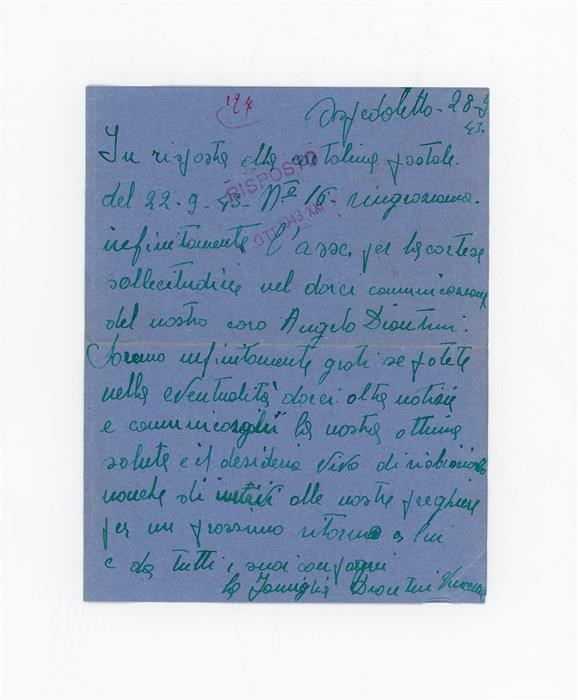 194
Ospedoletto - 28-9
43.
In risposta alla cartolina postale
del 22-9-43 Nº 16- ringraziamo
infinitamente l'assa. per la cortese
sollecitudine nel darci comunicazione
del nostro caro Angelo
Saremo infinitamente grati se potete
nella eventualità darci altre notizie
e comunicargli la nostra ottima
salute e il desiderio vivo di riabbracciarlo
nonche di unirvi alle nostre preghiere
per un prossimo ritorno a lui
e da tutti i suoi compagni
la Famiglia
RISPOSTO
OTT 1943 XXI